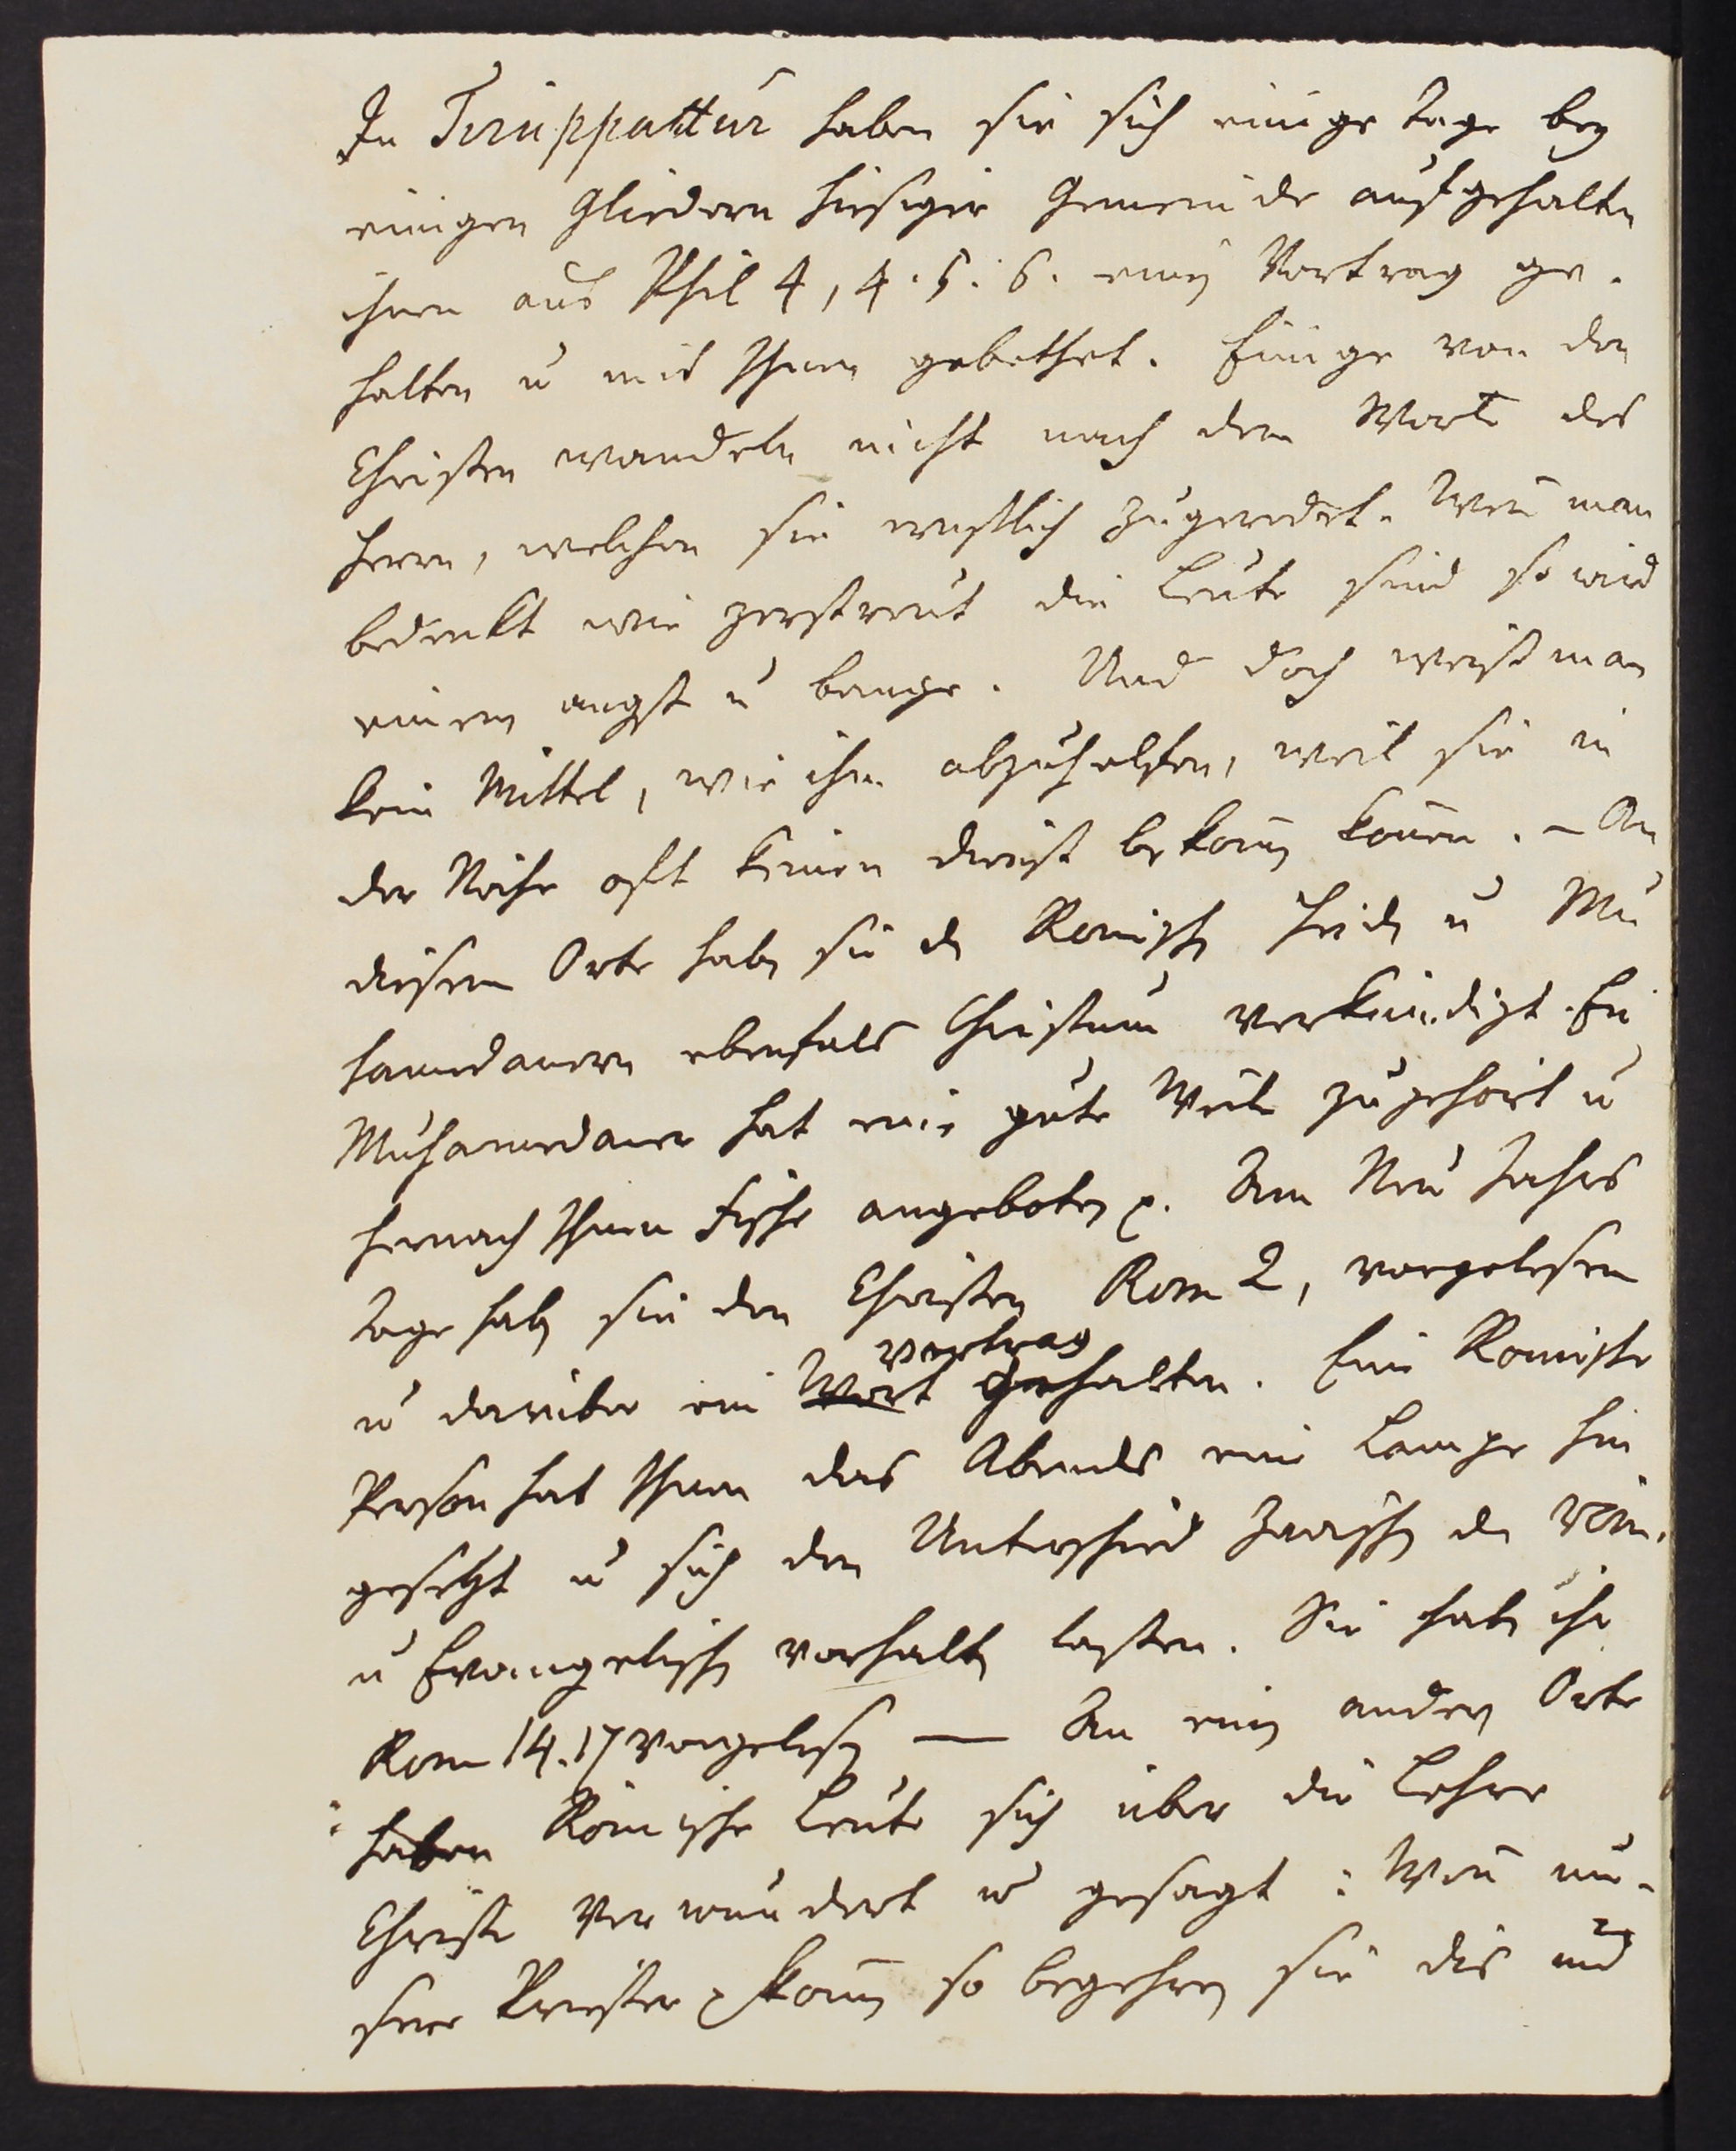 In Tiruppattur haben sie sich einige Tage bey
einigen Gliedern hiesiger Gemeinde aufgehalten
ihnen aus Phil 4, 4. 5. 6. einen Vortrag ge-
halten u mit Ihnen gebethet. Einige von den
Christen wandeln nicht nach dem Worte des
Herrn, welchen sie ernstlich zugeredet. Wen̄ man
bedenkt wie zerstreut die Leute sind so wird
einem angst u bange. Und doch weiß man
kein Mittel, wie ihm abzuhelfen, weil sie in
der Nähe oft keinen dienst bekom̄en kon̄en. – An
diesem Orte haben sie den Romischen Heiden u Mu
hamedanern ebenfals Christum verkündigt. Ein
Muhamedaner hat eine gute Weile zugehört u
hernach Ihnen Fische angeboten p. Am Neu Jahrs
Tage haben sie den Christen Rom 2, vorgelesen
u darüber ein Wort Vortrag gehalten. Eine Romische
Person hat Ihnen des Abends eine Lampe hin
gesetzt u sich den Unterschied zwischen den Röm.
u Evangelischen vorhalten lassen. Sie haben ihr
Rom 14. 17 vorgelesen — An einem andern Orte
haben Römische Leute sich über die Lehre
Christi verwundert u gesagt: Wen̄ un-
sere Priester p kom̄en so begehren sie dis und